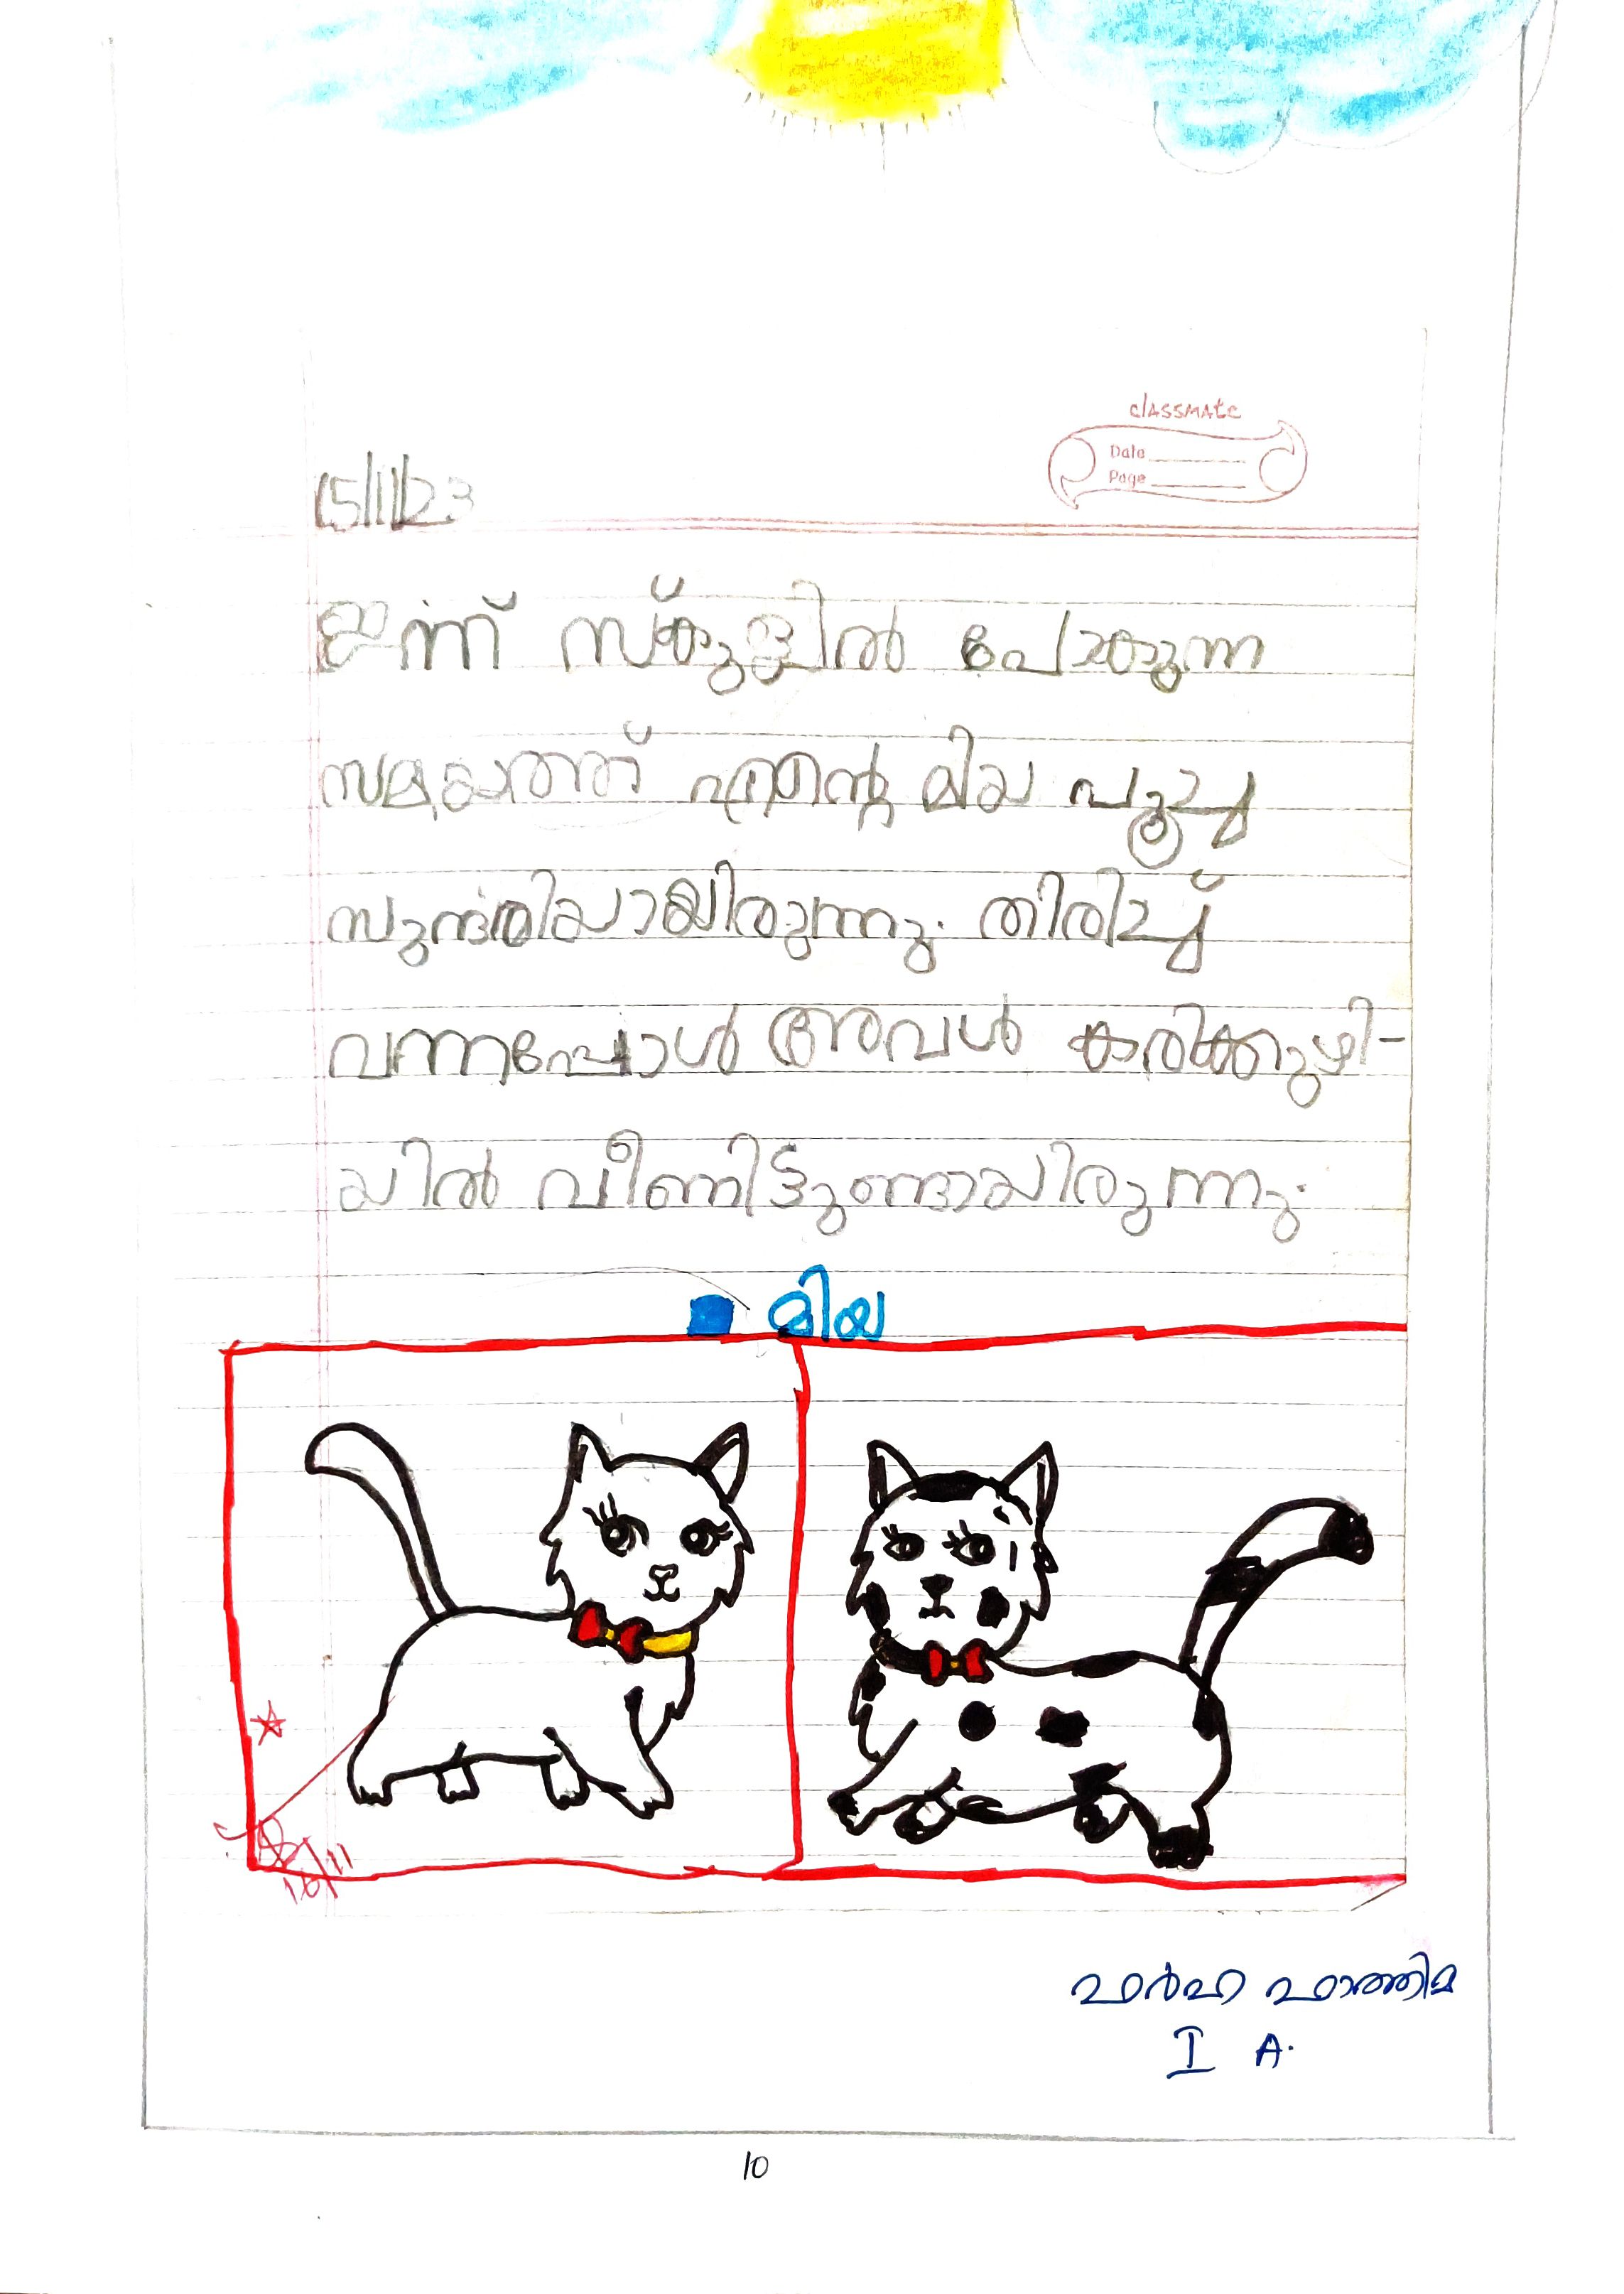 classmate
Date
Page
15/11/23
ഇന്ന് സ്കൂളിൽ പോകുന്ന
സമയത്ത് എന്റെ മിയ പൂച്ച
സുന്ദരിയായിരുന്നു. തിരിച്ച്
വന്നപ്പോൾ അവൾ കരിക്കുഴി-
യിൽ വീണിട്ടുണ്ടായിരുന്നു.
മിയ
16/11
ഫർഹ ഫാത്തിമ
I A.
10